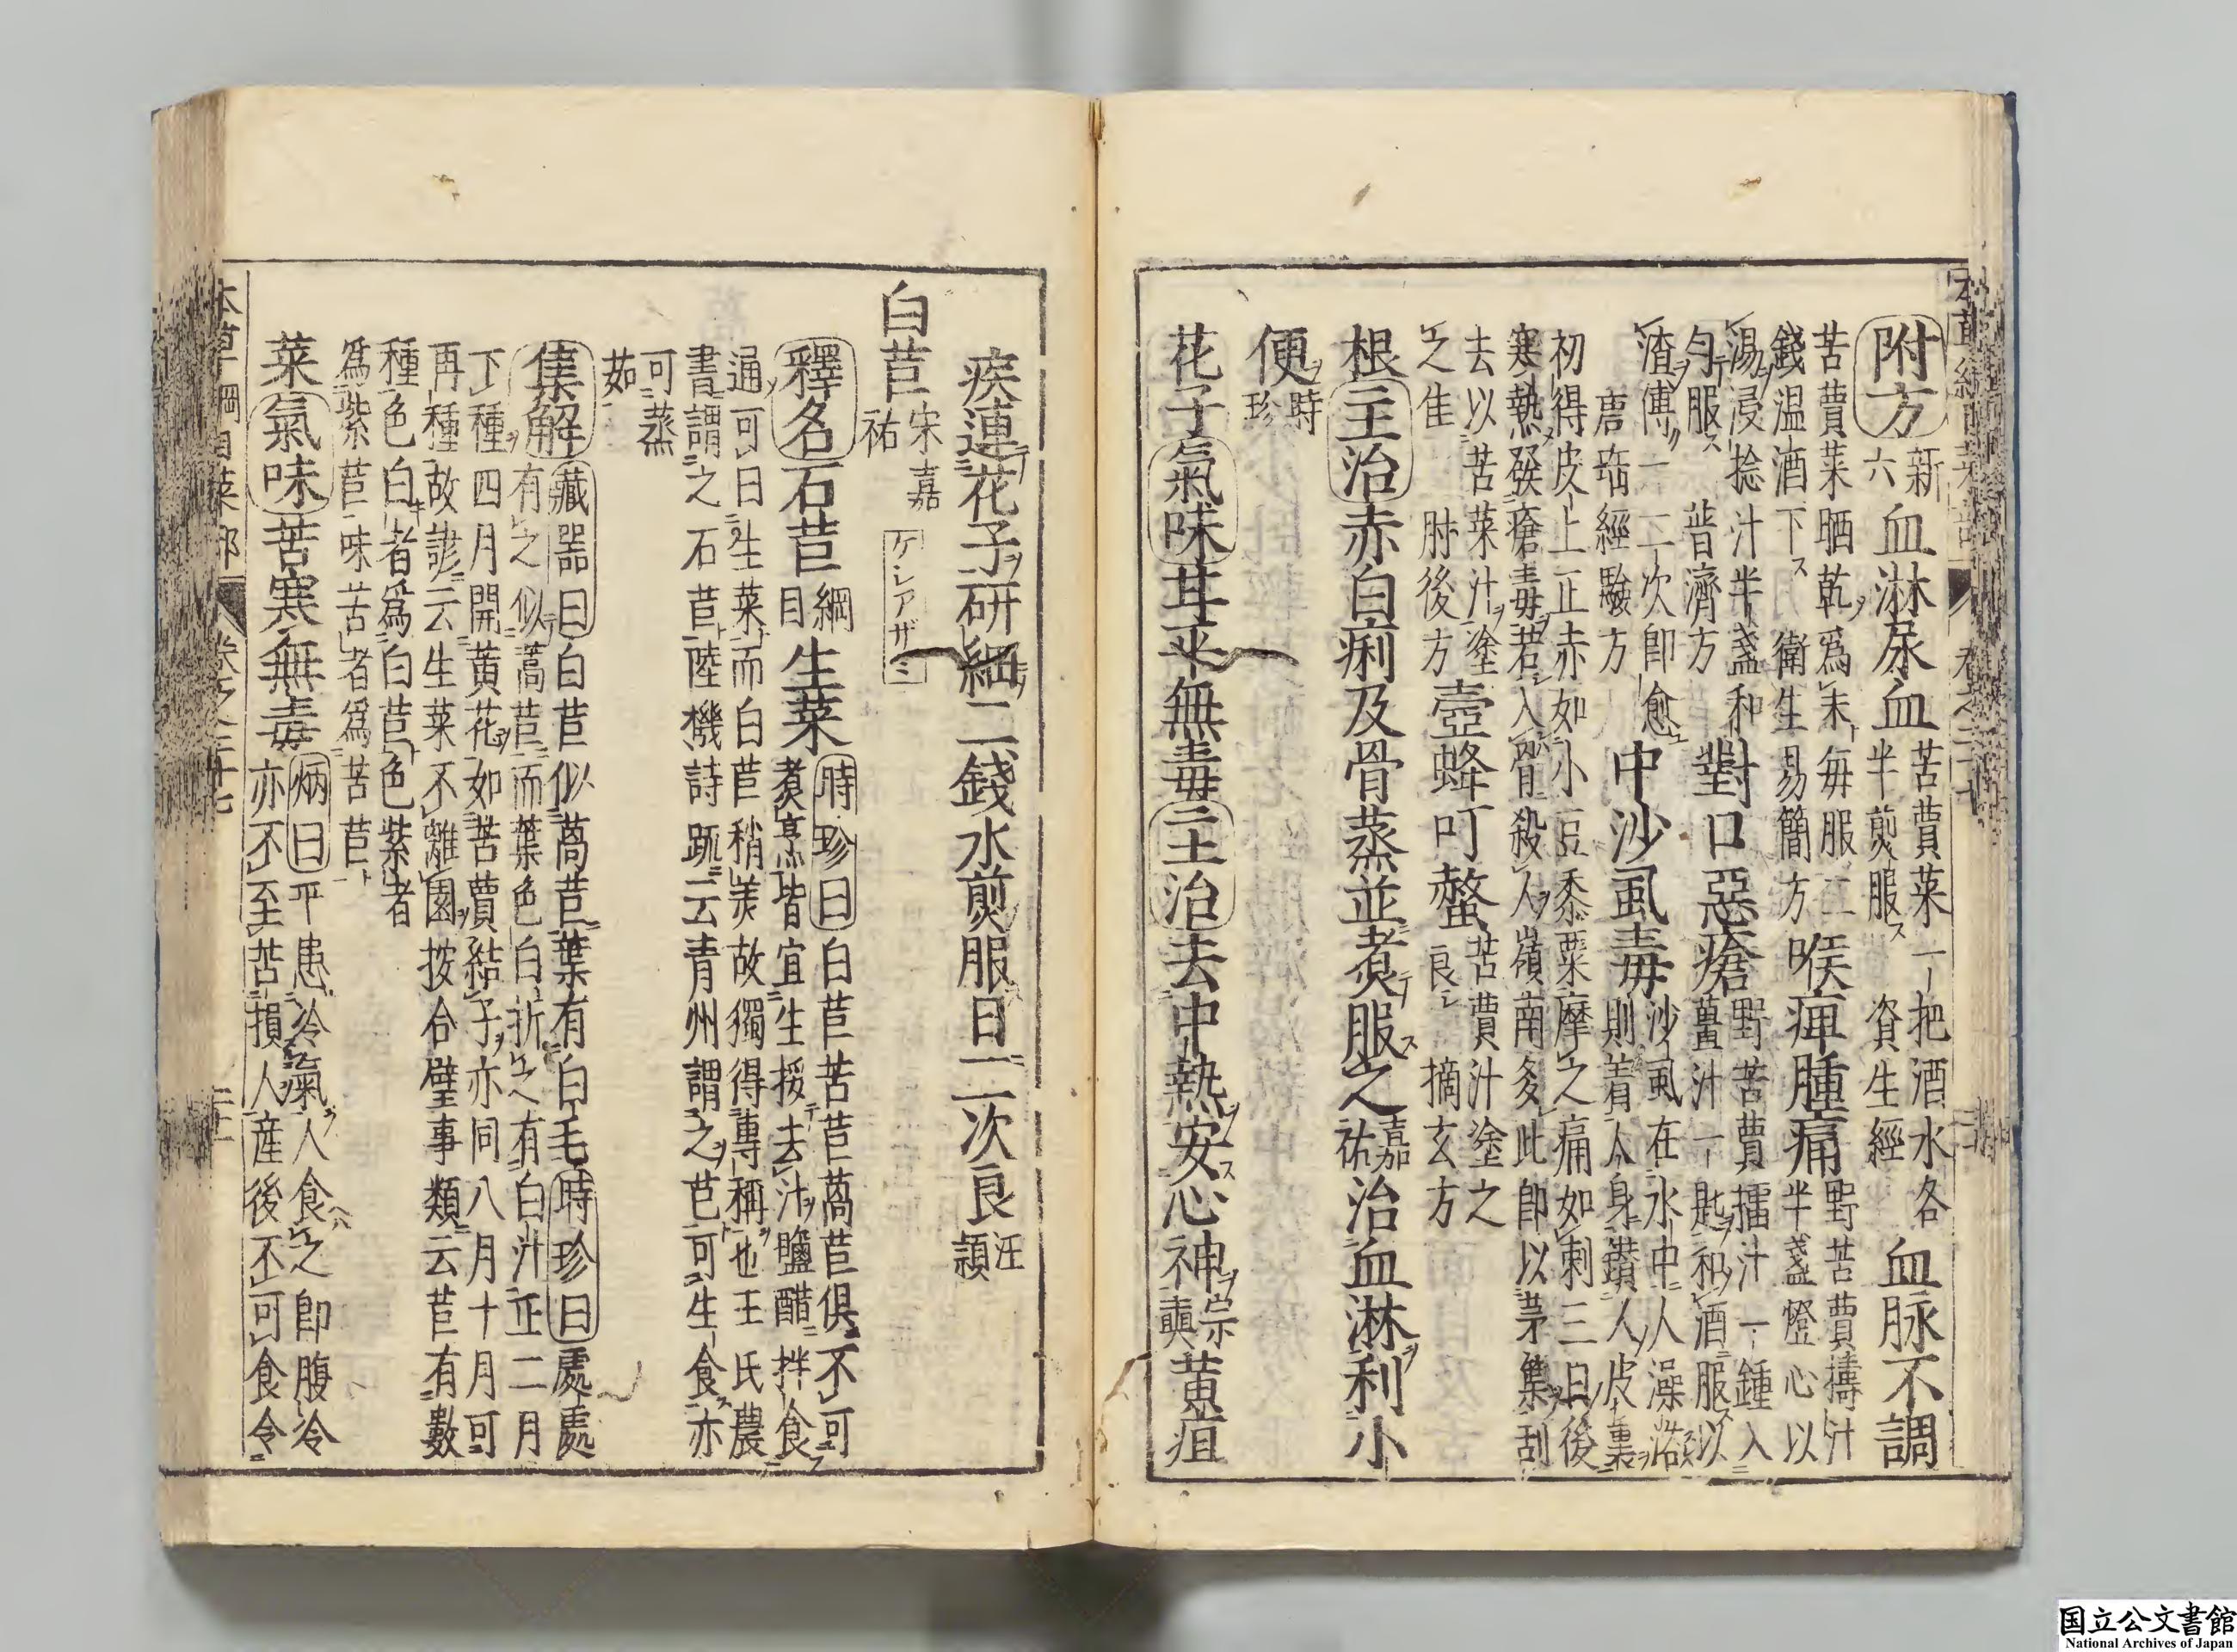 附方 新六 血淋尿血 苦蕒菜一把酒水各半煎服資生經 血脉不調
苦蕒菜晒乾爲末毎服二錢温酒下衛生易簡方 喉痺腫痛 野苦蕒擣汁半盞燈心以
湯浸捻汁半盞和匀服普濟方 對口惡瘡 野苦蕒擂汁一鍾入薑汁一匙和酒服以
渣傅一二次即愈唐瑶經驗方 中沙虱毒 沙虱在水中人澡浴則着人身鑚人皮裏
初得皮上正赤如小豆黍粟摩之痛如刺三日後寒熱發瘡毒若入骨殺人嶺南多此即以茅集刮
去以苦菜汁塗之佳肘後方 壺蜂叮螫 苦蕒汁塗之良摘玄方
根主治赤白痢及骨蒸並煮服之嘉祐治血淋利小
便時珍
花子氣味甘平無毒主治去中熱安心神宗奭黄疸
疾蓮花子研細二錢水煎服日二次良汪頴
白苣 宋嘉祐 ケシアザミ
釋名石苣綱目生菜 時珍曰白苣苦苣萵苣俱不可煮烹皆宜生挼去汁鹽醋拌食
通可曰生菜而白苣稍美故獨得專稱也王氏農書謂之石苣陸機詩疏云青州謂之芑可生食亦
可蒸茹
集解藏器曰白苣似萵苣葉有白毛時珍曰處處有之似萵苣而葉色白折之有白汁正二月
下種四月開黄花如苦蕒結子亦同八月十月可再種故諺云生菜不離園按合璧事類云苣有數
種色白者爲白苣色紫者爲紫苣味苦者爲苦苣
菜氣味苦寒無毒 炳曰平患冷氣人食之即腹冷亦不至苦損人産後不可食令
本草綱目菜部 卷之二十七
国立公文書館
National Archives of Japan